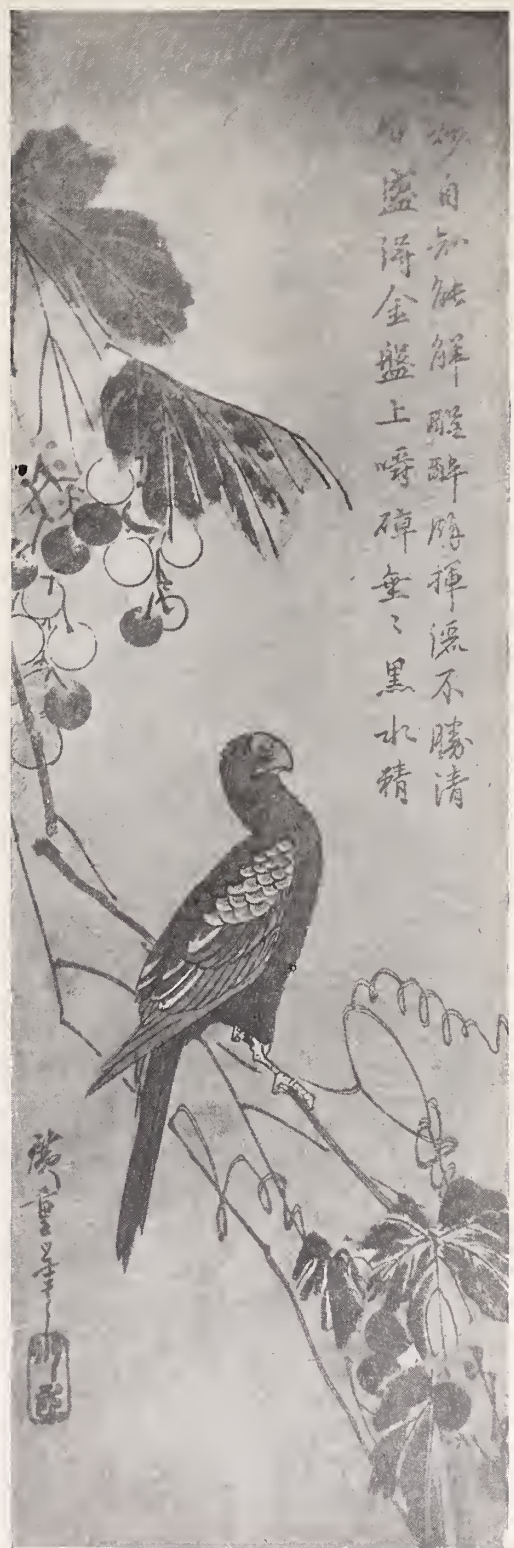 自知能解酲醉時揮洒不勝清
盛得金盤上嚼碎垂〻黒水精
廣重筆